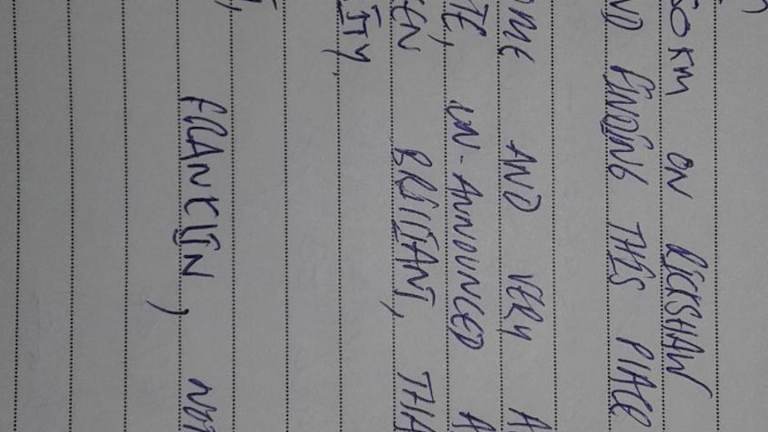 50KM ON RICKSHAW
ND FINDING THIS PLACE
OME AND VERY A
TE, UN-ANNOUNCED A
EEN BRILLIANT, THA
ITY.
FRANKLIN, NOR